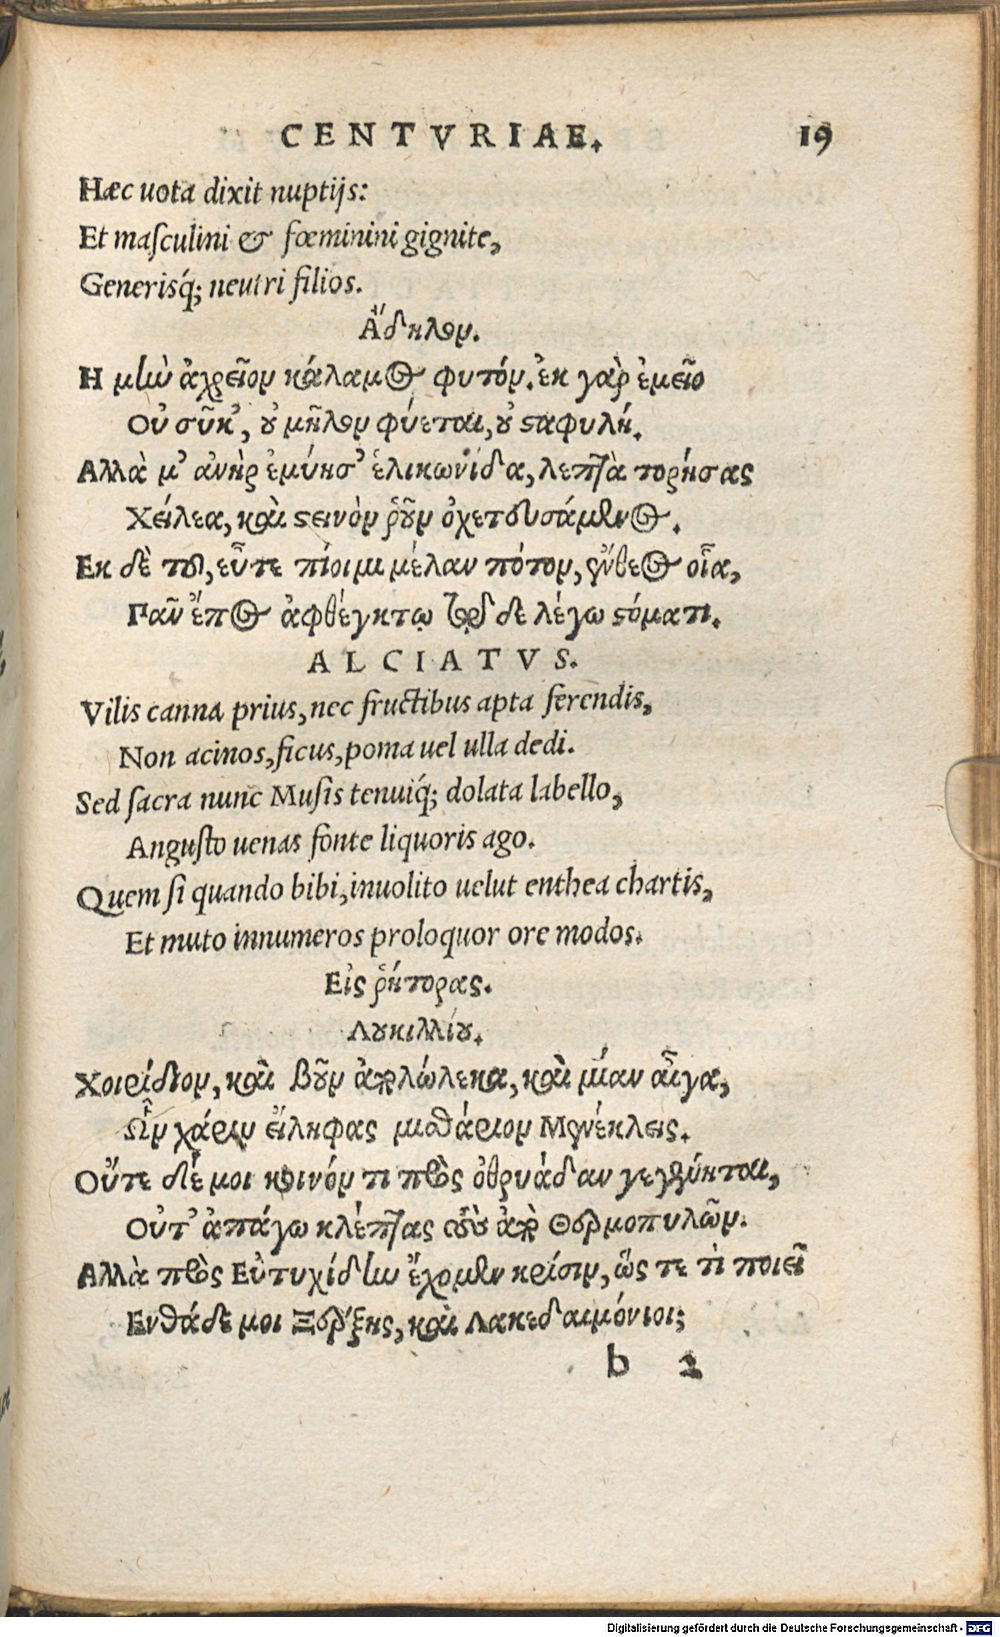 CENTVRIAE. 19
Hæc uota dixit nuptijs:
Et masculini & fœminini gignite,
Generisq́; neutri filios.
Ἄδηλον.
Η μὴν ἀχρεῖον κάλαμος φυτόν. ἐκ γὰρ ἐμεῖο
Οὐ σῦκ’, οὐ μῆλον φύεται, οὐ σταφυλή.
Αλλὰ μ’ ἀνὴρ ἐμύησ’ ἑλικωνίδα, λεπτὰ τορήσας
Χείλεα, καὶ στεινὸν ῥοῦν ὀχετευσάμενος.
Εκ δὲ τοῦ, εὖτε πίοιμι μέλαν πότον, ἔνθεος οἷα,
Πᾶν ἔπος ἀφθέγκτῳ τῷδε λέγω στόματι.
ALCIATVS.
Vilis canna prius, nec fructibus apta ferendis,
Non acinos, ficus, poma uel ulla dedi.
Sed sacra nunc Musis tenuiq́; dolata labello,
Angusto uenas fonte liquoris ago.
Quem si quando bibi, inuolito uelut enthea chartis,
Et muto innumeros proloquor ore modos.
Εἰς ῥήτορας.
Λουκιλλίου.
Χοιρίδιον, καὶ βοῦν ἀπολώλεκα, καὶ μίαν αἶγα,
Ὧν χάριν εἴληφας μισθάριον Μενέκλεις.
Οὔτε δέ μοι κοινόν τι πρὸς ὀθρυάδαν γεγένηται,
Οὐτ’ ἀπάγω κλέπτας τοὺς ἀπὸ Θερμοπυλῶν.
Αλλὰ πρὸς Εὐτυχίδην ἔχομεν κρίσιν, ὥς τε τὶ ποιεῖ
Ενθάδε μοι Ξέρξης, καὶ Λακεδαιμόνιοι;
b 2
Digitalisierung gefördert durch die Deutsche Forschungsgemeinschaft - DFG